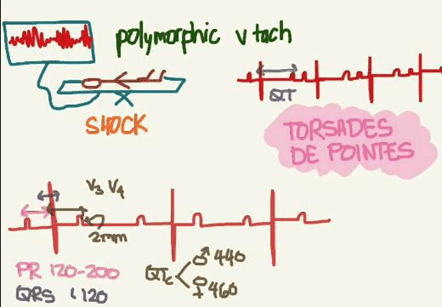 polymorphic v tach
SHOCK
QT
TORSADES
DE POINTES
V3 V4
2mm
PR 120-200
QRS <120
QTc
♂ 440
♀ 460